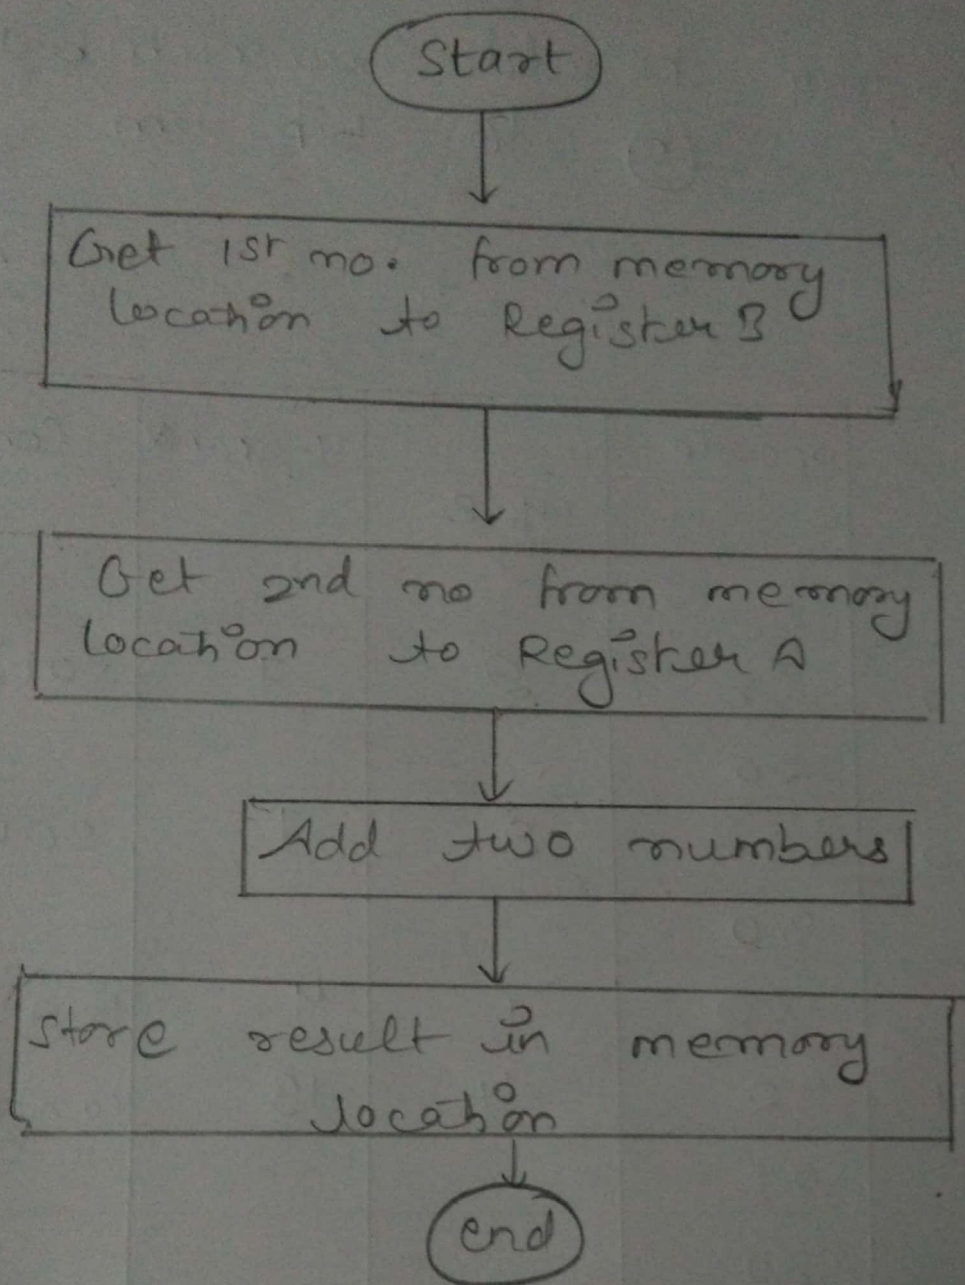 Start
Get 1st no. from memory
location to Register B
Get 2nd no from memory
location to Register A
Add two numbers
Store result in memory
location
end